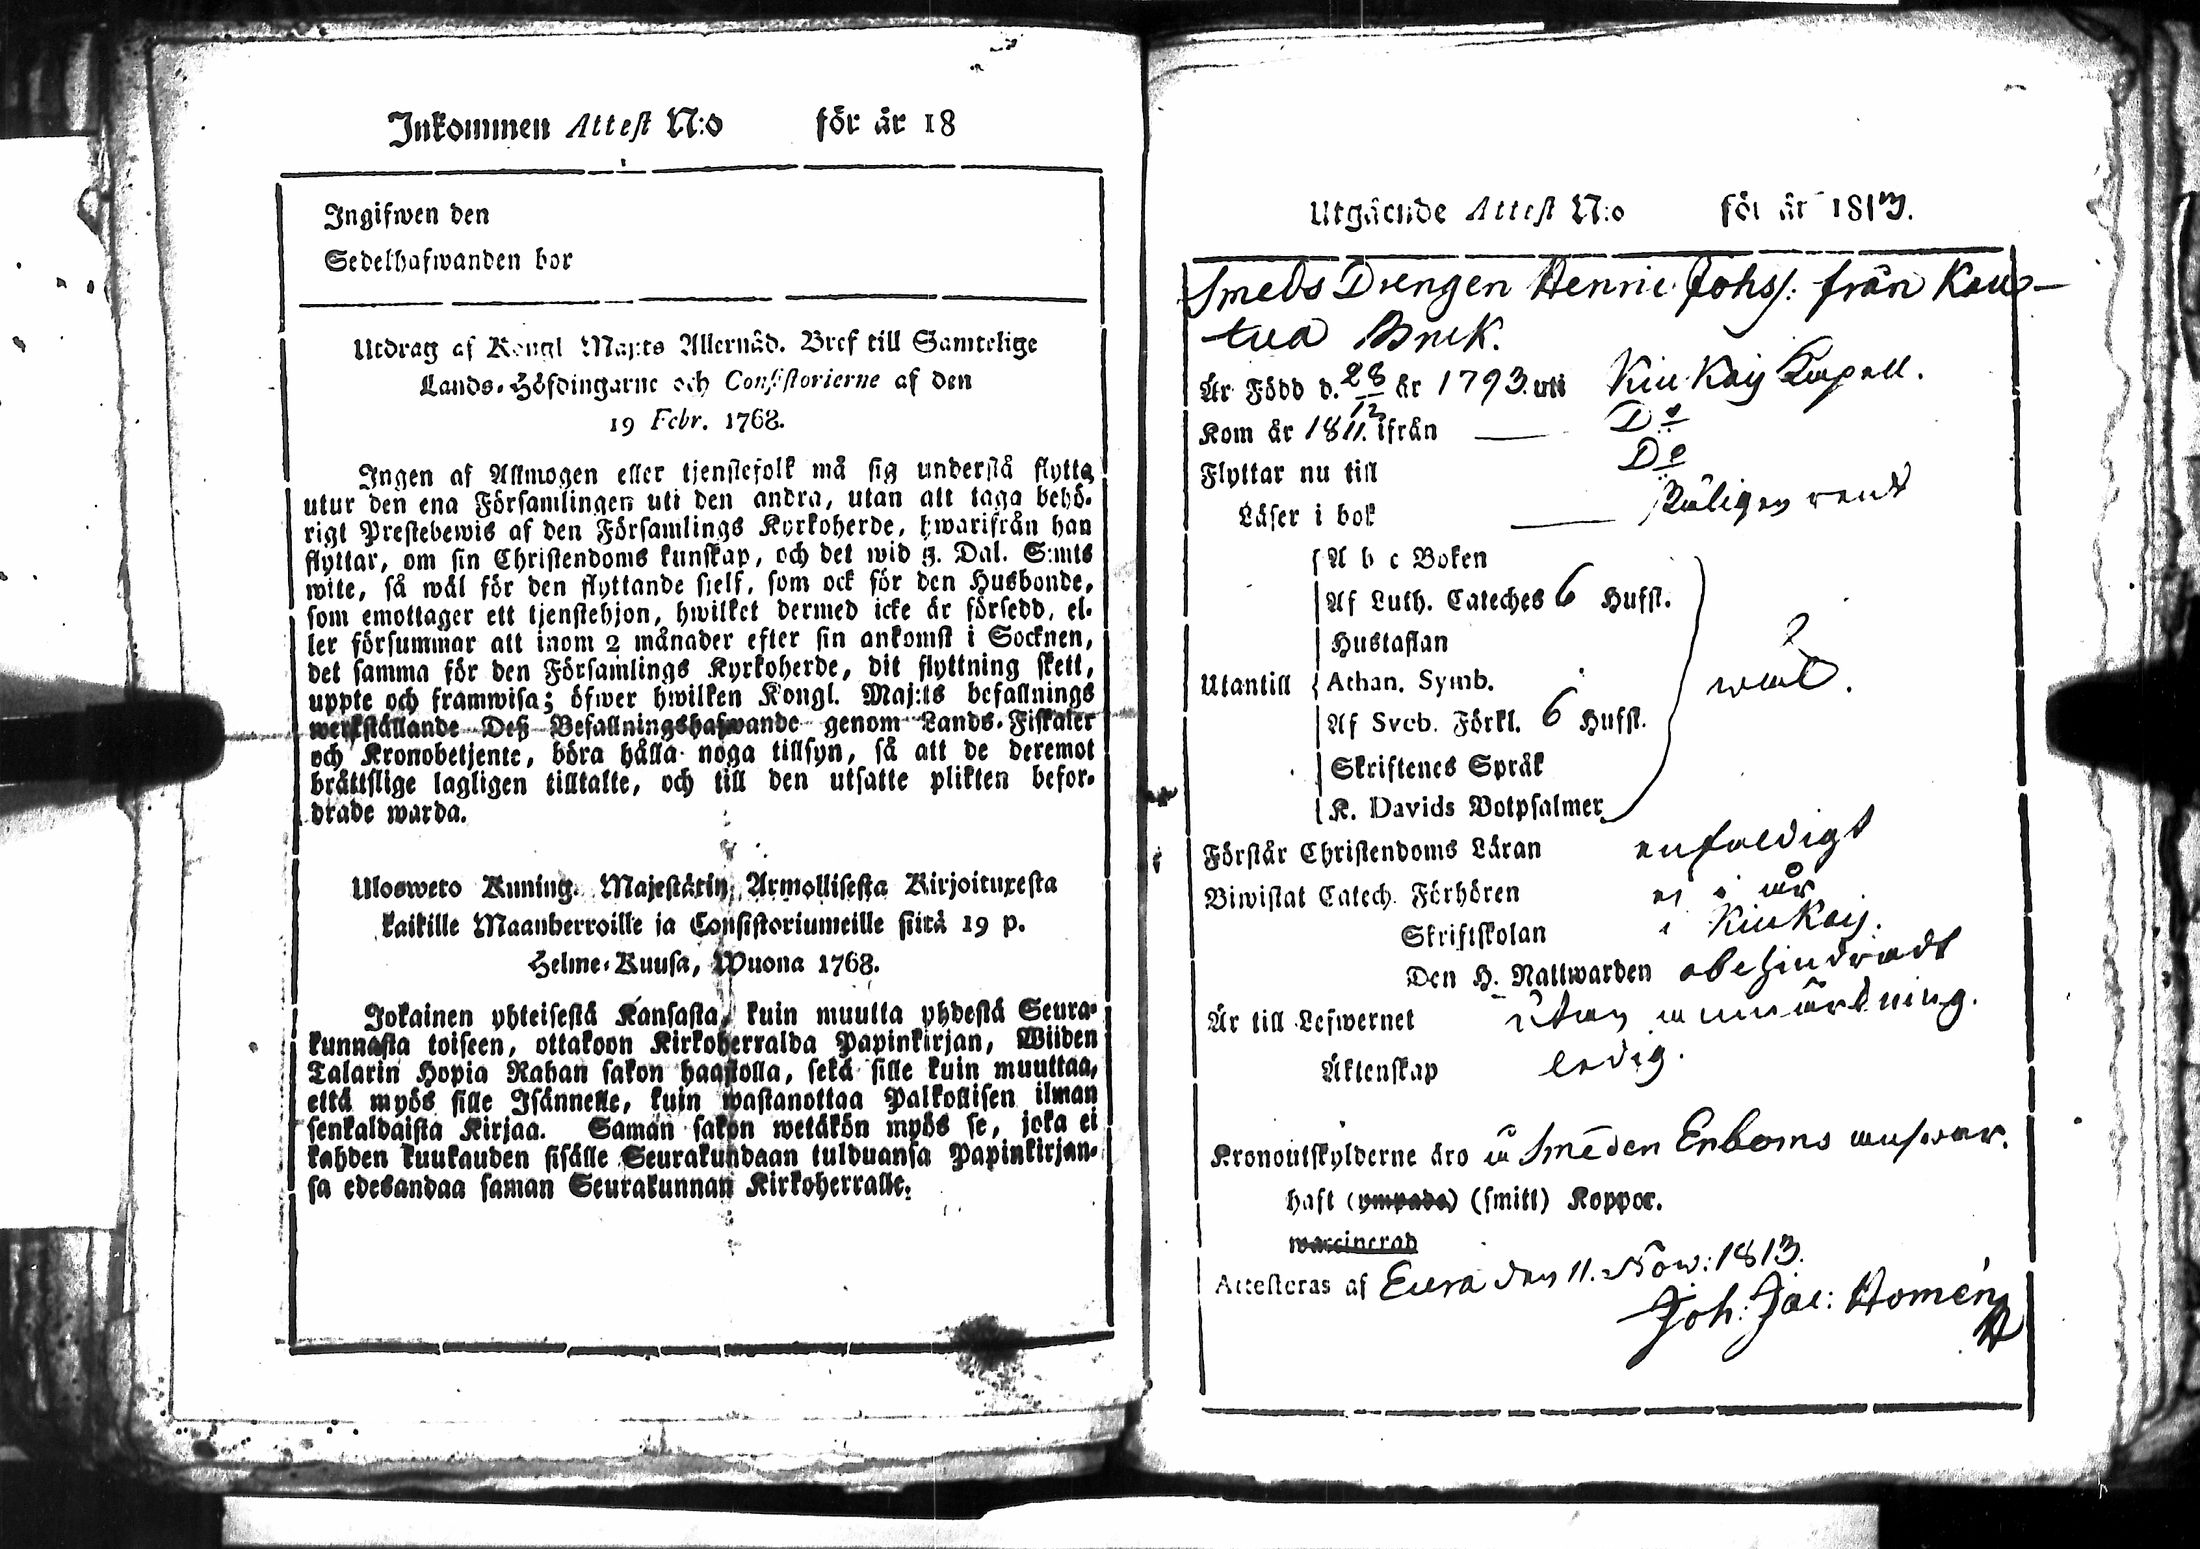 Inkommen Attest N:o för år 18
Ingifwen den
Sedelhafwanden bor
Utdrag af Kongl Maj:ts Allernåd. Bref till Samtelige
Lands-Höfdingarne och Consistorierne af den
19 Febr. 1768.
Ingen af Allmogen eller tjenstefolk må sig understå flytta
utur den ena Församlingen uti den andra, utan att taga behö-
rigt Prestebewis af den Församlings Kyrkoherde, hwarifrån han
flyttar, om sin Christendoms kunskap, och det wid 5. Dal. S:mts
wite, så wäl för den flyttande sielf, som ock för den Husbonde,
som emottager ett tjenstehjon, hwilket dermed icke är försedd, el-
ler försummar att inom 2 månader efter sin ankomst i Socknen,
det samma för den Församlings Kyrkoherde, dit flyttning skett,
uppte och framwisa; öfwer hwilken Kongl. Maj:ts befallnings
werkställande Deß Befallningshafwande genom Lands-Fiskaler
och Kronobetjente, böra hålla noga tillsyn, så att de deremot
bråttslige lagligen tilltalte, och till den utsatte plikten befor-
drade warda.
Ulosweto Kuning. Majestätin, Armollisesta Kirjoituxesta
kaikille Maanherroille ja Consistoriumeille siitä 19 p.
Helme-Kuusa, Wuona 1768.
Jokainen yhteisestä Kansasta, kuin muutta yhdestä Seura-
kunnasta toiseen, ottakoon Kirkoherralda Papinkirjan, Wiiden
Talarin Hopia Rahan sakon haastolla, sekä sille kuin muuttaa,
että myös sille Isännelle, kuin wastanottaa Palkollisen ilman
senkaldaista Kirjaa. Saman sakon wetäkön myös se, joka ei
kahden kuukauden sisälle Seurakundaan tulduansa Papinkirjan-
sa edesandaa saman Seurakunnan Kirkoherralle.
Utgående Attest N:o för år 1813.
Smeds Drengen Henric Johs/: från Kau-
tua Bruk.
Är Född d. 28/12 år 1793. uti Kiukais Capell.
Kom år 1811. ifrån — Do
Flyttar nu till Do
Läser i bok — rent
A b c Boken
Af Luth. Cateches 6 Hufst.
Hustaflan
Utantill Athan. Symb. wäl.
Af Sveb. Förkl. 6 Hufst.
Skriftenes Språk
K. Davids Botpsalmer
Förstår Christendoms Läran enfaldigt
Biwistat Catech. Förhören i år
Skriftskolan i Kiukais.
Den H. Nattwarden obehindradt
Är till Lefwernet utan anmärkning.
Äktenskap ledig.
Kronoutskylderne äro å Smeden Enboms answar.
haft (ympade) (smitt) Koppor.
waccinerad
Attesteras af Eura den 11. Now: 1813.
Joh: Jac: Homén